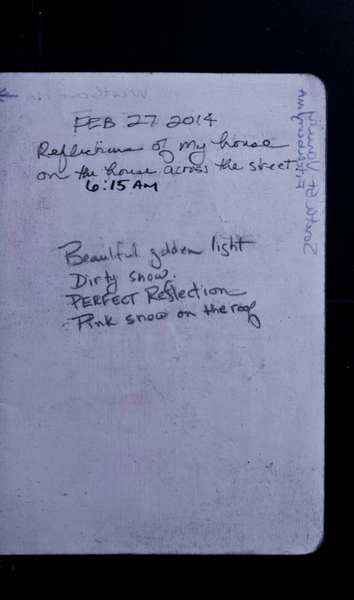 FEB 27 2014
Reflections of my house
on the house across the street
6:15 AM
Beautiful golden light
Dirty snow.
PERFECT Reflection
Pink snow on the roof